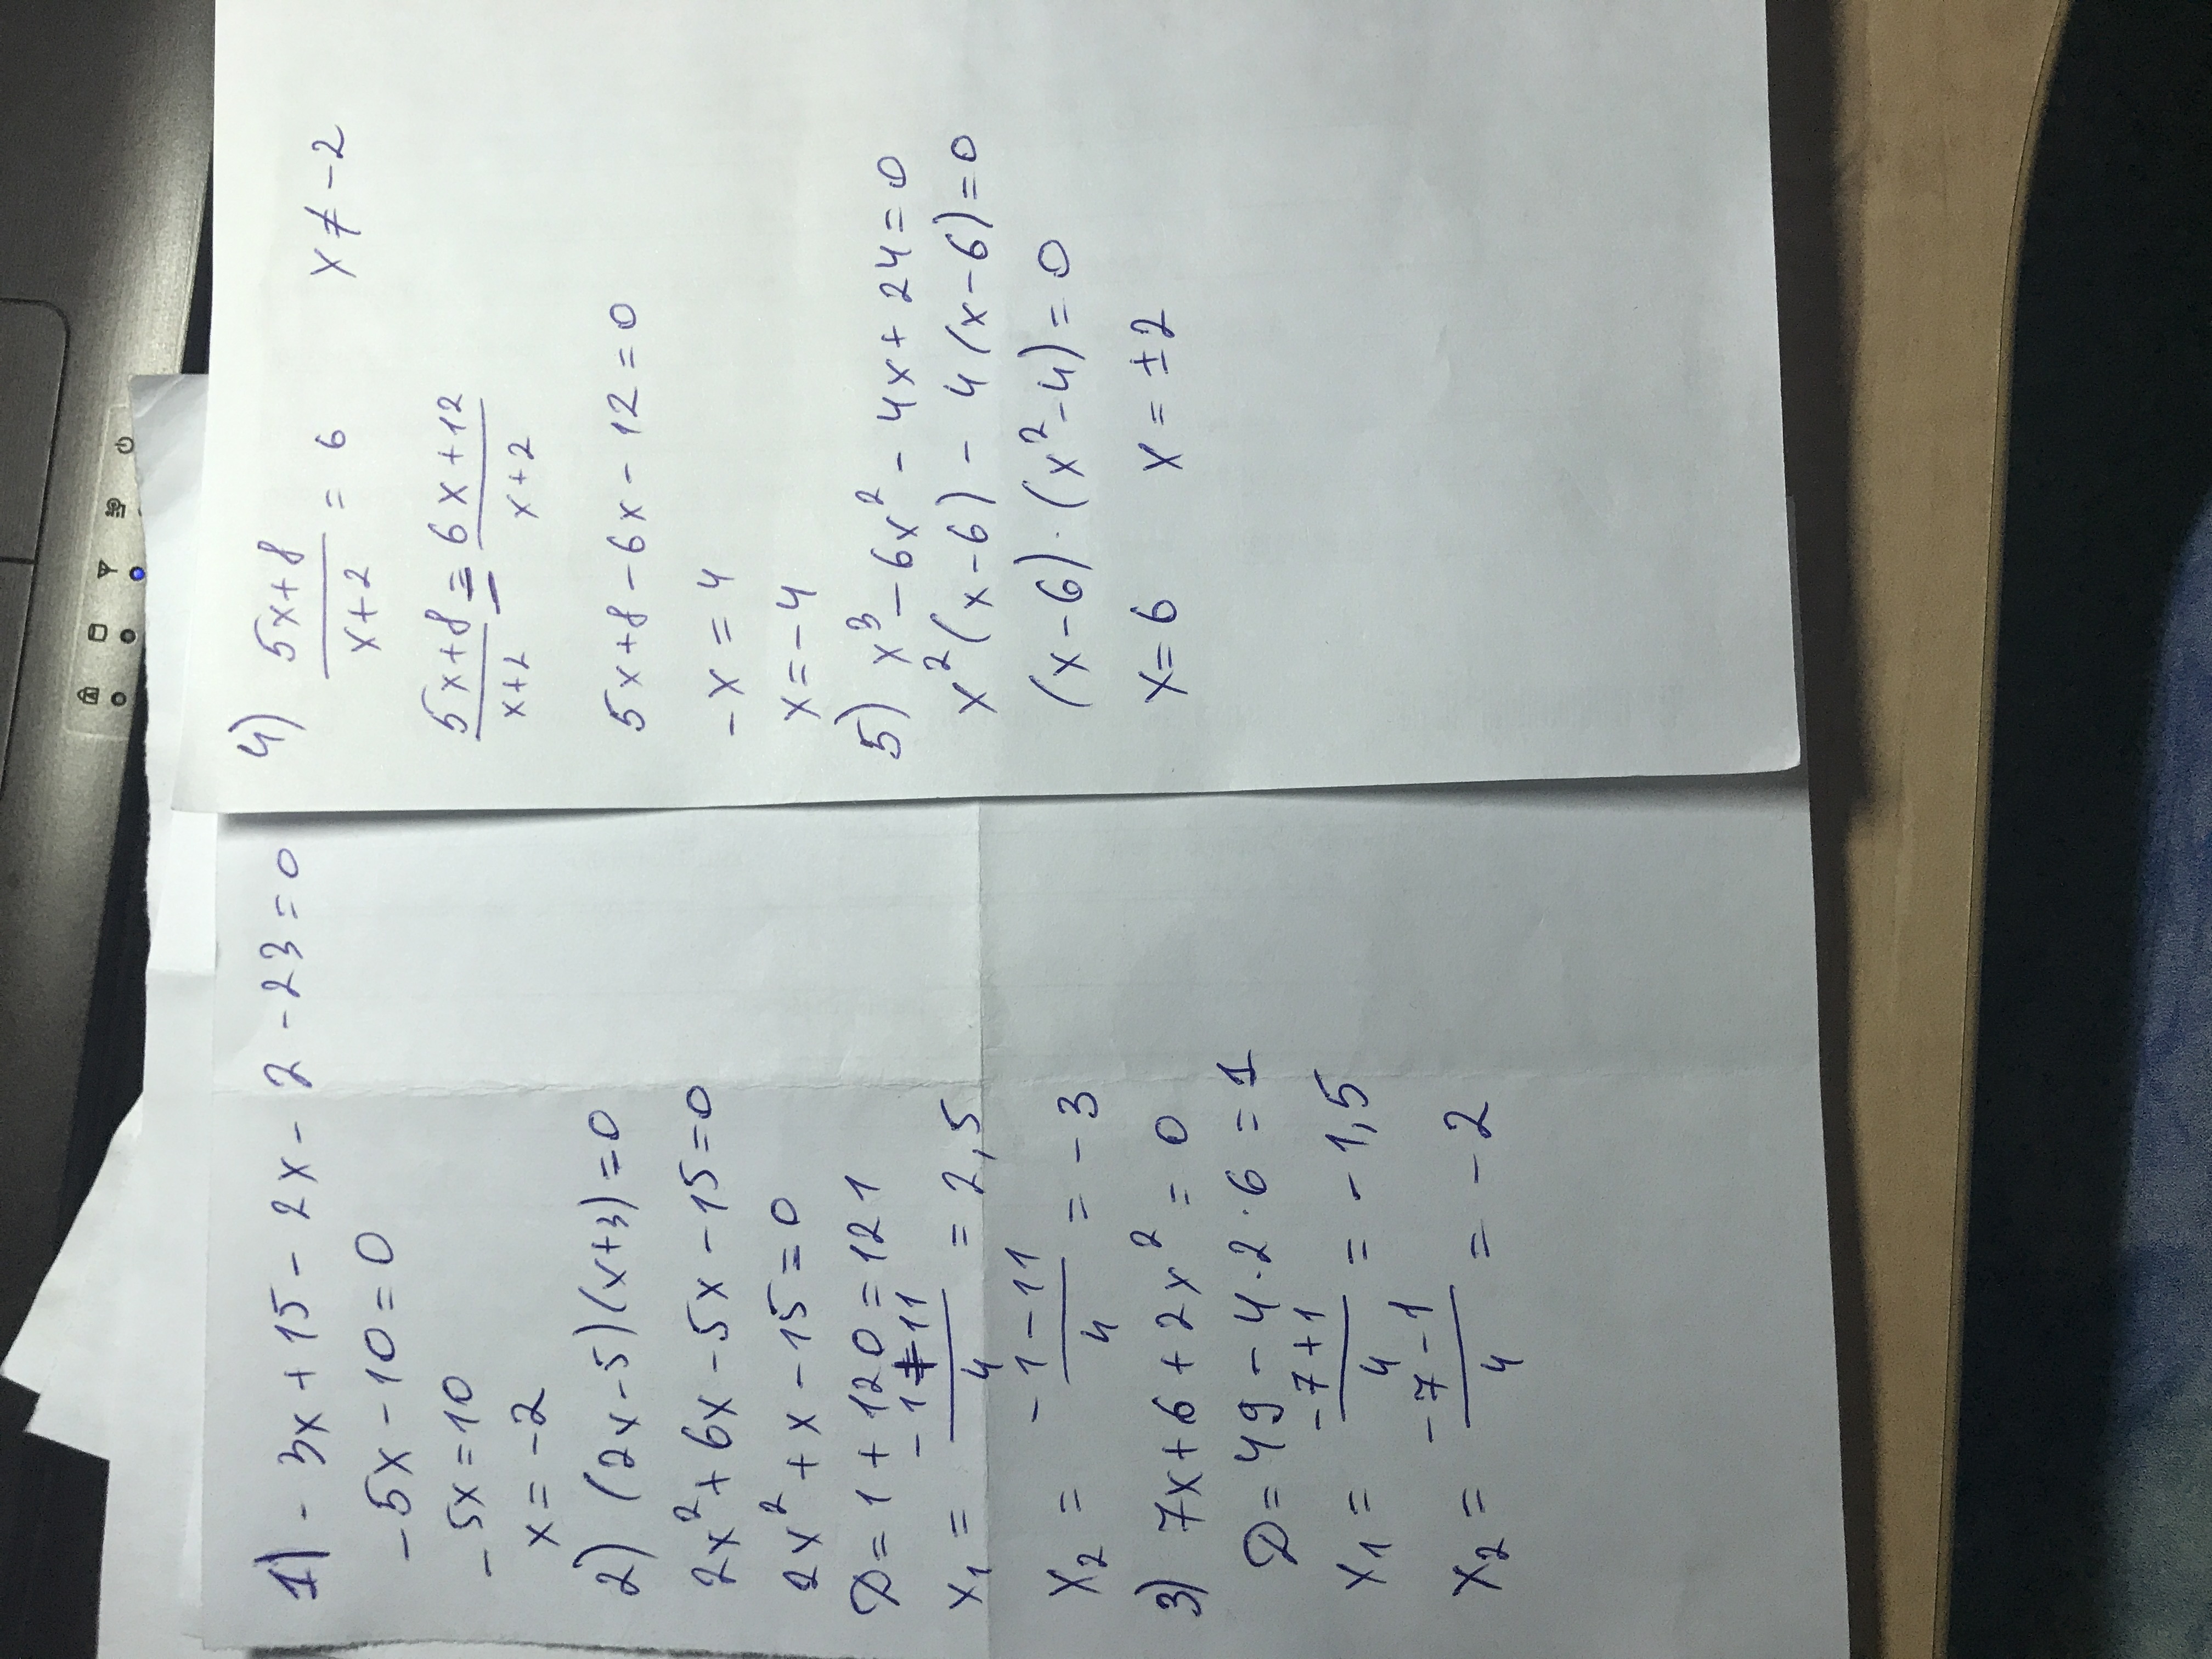 1) - 3x + 15 - 2x - 2 - 23 = 0
- 5x - 10 = 0
- 5x = 10
x = -2
2) (2x-5)(x+3)=0
2x² + 6x - 5x - 15 = 0
2x² + x - 15 = 0
D = 1 + 120 = 121
x₁ = (-1+11)/4 = 2,5
x₂ = (-1-11)/4 = -3
3) 7x + 6 + 2x² = 0
D = 49 - 4·2·6 = 1
x₁ = (-7+1)/4 = -1,5
x₂ = (-7-1)/4 = -2
4) (5x+8)/(x+2) = 6 x ≠ -2
(5x+8)/(x+2) = (6x+12)/(x+2)
5x+8 - 6x - 12 = 0
-x = 4
x = -4
5) x³ - 6x² - 4x + 24 = 0
x²(x-6) - 4(x-6) = 0
(x-6)·(x²-4) = 0
x = 6 x = ±2